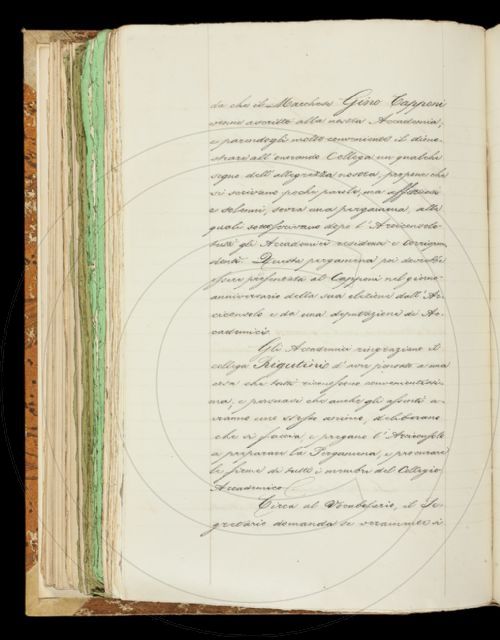 da che il Marchese Gino Capponi
venne ascritto alla nostra Accademia,
e parendogli molto conveniente il dimo-
strare all'onorando Collega un qualche
segno dell'allegrezza nostra, propone che
si scrivano poche parole, ma affettuose
e solenni, sovra una pergamena, alla
quale sottoscrivano dopo l'Arciconsolo
tutti gli Accademici residenti e corrispon
denti. Questa pergamena poi dovrebbe
essere presentata al Capponi nel giorno
anniversario della sua elezione dall'Ar-
ciconsolo e da una deputazione di Ac-
cademici.
Gli Accademici ringraziano il
collega Rigutini d'aver pensato a una
cosa che tutti riconoscono convenientissi-
ma, e persuasi che anche gli assenti a-
vranno uno stesso animo, deliberano
che si faccia, e pregano l'Arciconsolo
a preparare la Pergamena, e procurare
le firme di tutti i membri del Collegio
Accademico.
Circa al Vocabolario, il Se-
gretario domanda se veramente